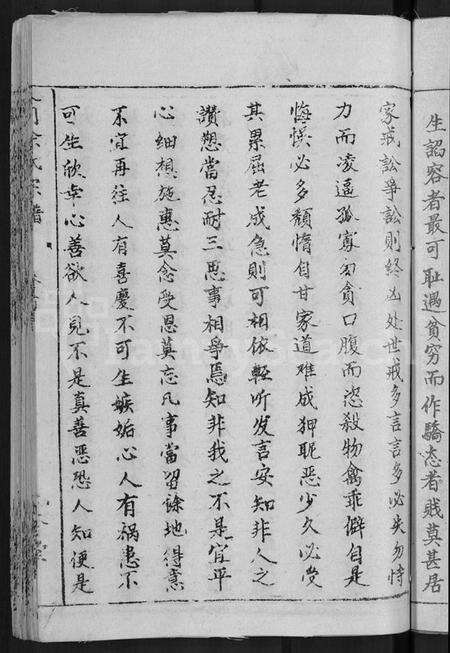 生謟容者最可耻遇貧穷而作驕态者贱莫甚居
家戒訟爭訟則终凶处世戒多言言多必失勿恃
力而凌逼孤寡勿貪口腹而恣殺物禽乖僻自是
悔悮必多頹惰自甘家道难成狎昵恶少久必受
其累屈老成急則可相依輕听发言安知非人之
讚愬當忍耐三思事相爭焉知非我之不是宜平
心细想施惠莫念受恩莫忘凡事當留餘地得意
不宜再往人有喜慶不可生嫉妬心人有祸患不
可生欣幸心善欲人見不是真善恶恐人知便是
氏宗譜